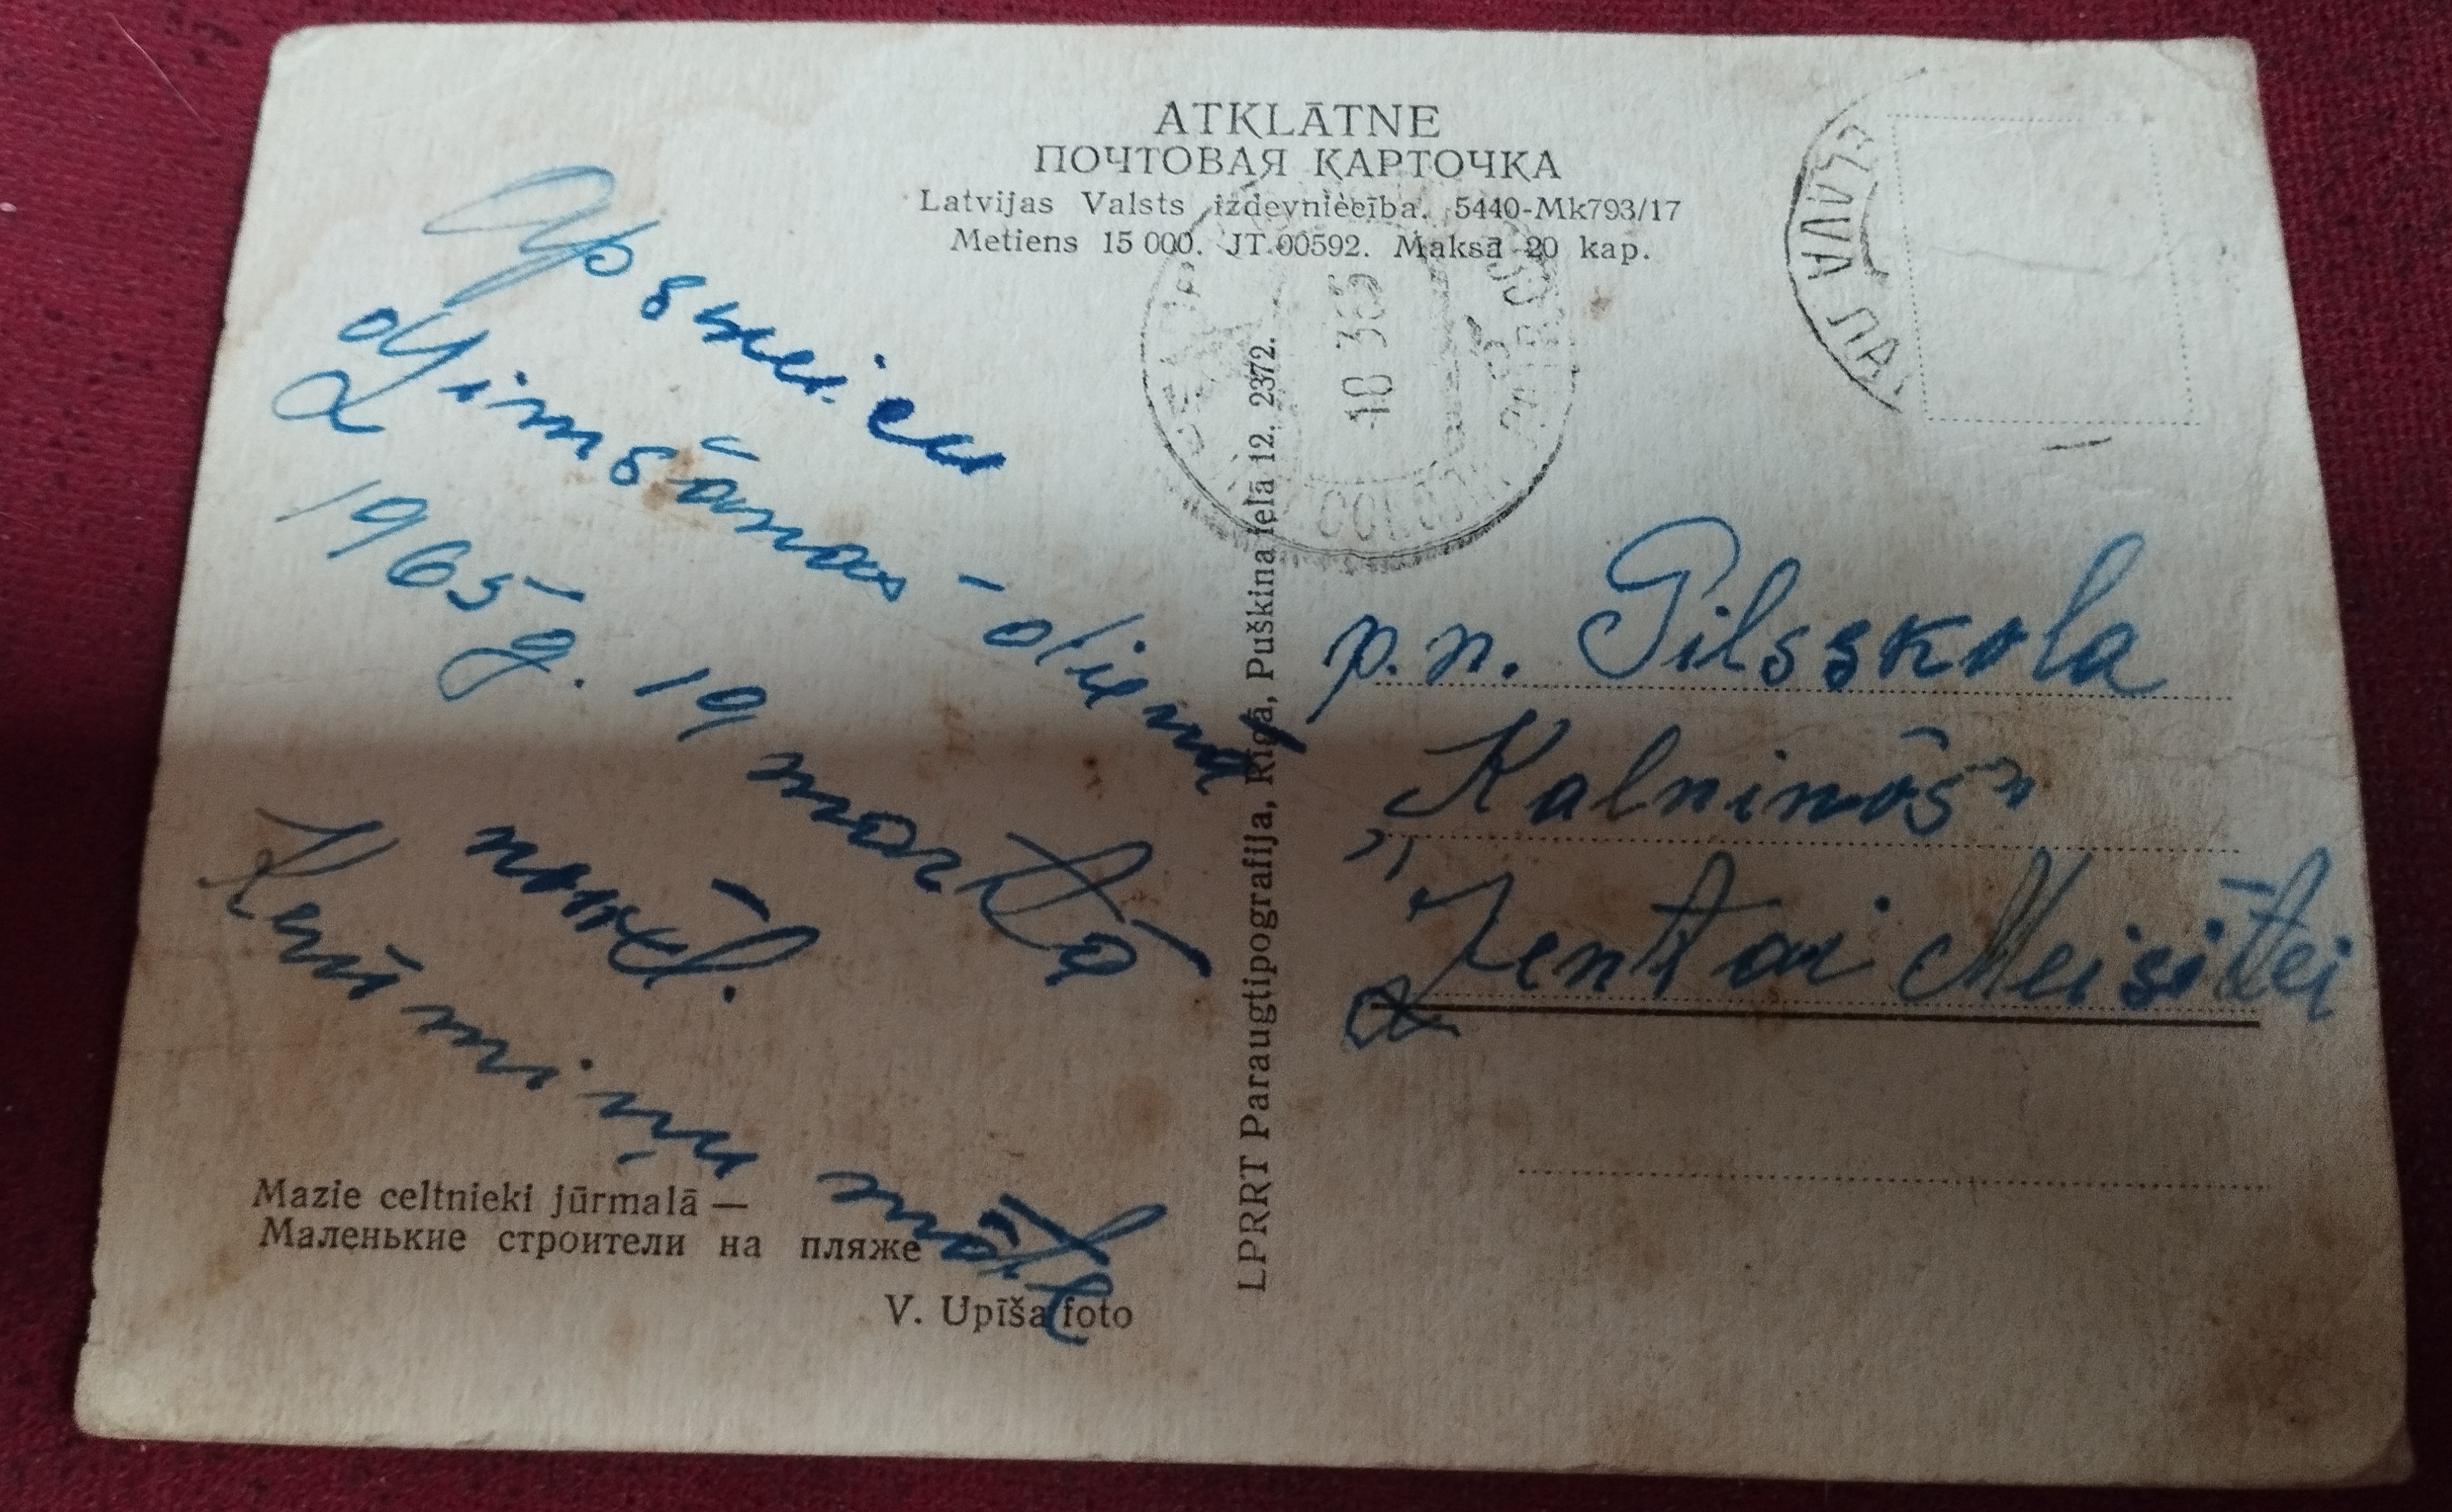 ATKLĀTNE
ПОЧТОВАЯ КАРТОЧКА
Latvijas Valsts izdevniecība. 5440-Mk793/17
Metiens 15 000. JT 00592. Maksā 20 kap.
Apsveicu
dzimšanas-dienā
1965 g. 19 martā
Ķeniņu māte
Mazie celtnieki jūrmalā —
Маленькие строители на пляже
V. Upīša foto
LPRRT Paraugtipografija, Rīgā, Puškina ielā 12. 2372.
p.n. Pilsskola
"Kalninōs"
Zentai